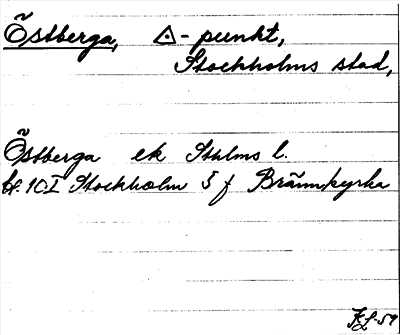 Östberga, △-punkt,
Stockholms stad,
Östberga ek Sthlms l.
bl. 10I Stockholm 5 f Brännkyrka